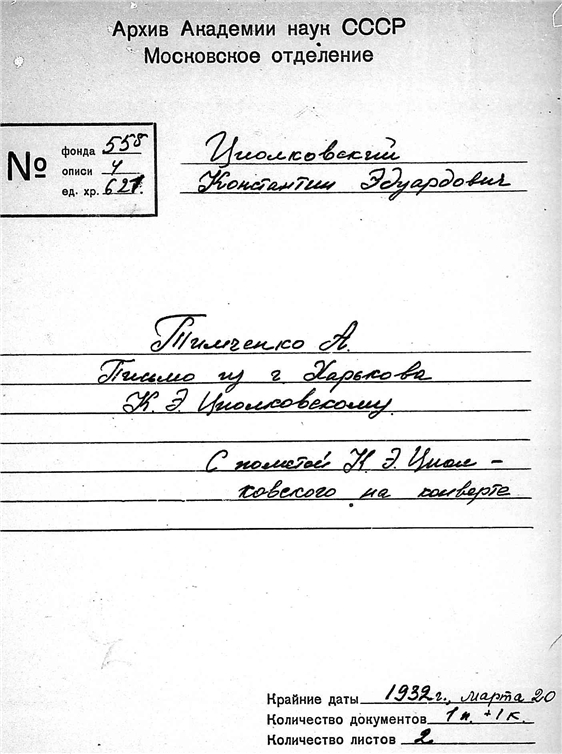 Архив Академии наук СССР
Московское отделение
№
фонда 555
описи 4
ед. хр. 621.
Циолковский
Константин Эдуардович
Тимченко А.
Письмо из г. Харькова
К. Э. Циолковскому.
С пометой К. Э. Циол-
ковского на конверте
Крайние даты 1932 г., марта 20
Количество документов 1 п. + 1 к.
Количество листов 2